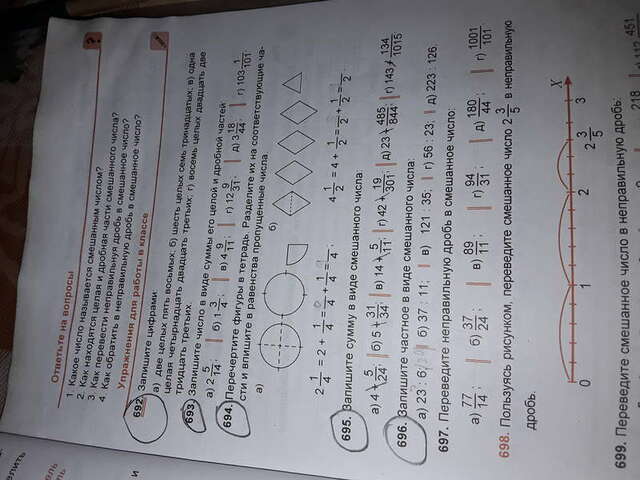 Ответьте на вопросы
1 Какое число называется смешанным числом?
2 Как находятся целая и дробная части смешанного числа?
3 Как перевести неправильную дробь в смешанное число?
4 Как обратить в неправильную дробь в смешанное число?
Упражнения для работы в классе
692. Запишите цифрами
а) две целых пять восьмых; б) шесть целых семь тринадцатых; в) одна
целая четырнадцать двадцать третьих; г) восемь целых двадцать две
тридцать третьих.
693. Запишите число в виде суммы его целой и дробной частей
а) 2 5/14; б) 1 3/4; в) 4 9/11; г) 12 9/31; д) 3 18/44; г) 103 1/101
694. Перечертите фигуры в тетрадь. Разделите их на соответствующие ча-
сти и впишите в равенства пропущенные числа
а) б)
2 1/4 = 2 + 1/4 = /4 + /4 + 1/4 = /4; 4 1/2 = 4 + 1/2 = /2 + 1/2 = /2.
695. Запишите сумму в виде смешанного числа
а) 4 + 5/24; б) 5 + 31/34; в) 14 + 5/11; г) 42 + 19/301; д) 23 + 485/544; г) 143 + 134/1015
696. Запишите частное в виде смешанного числа:
а) 23 : 6; б) 37 : 11; в) 121 : 35; г) 56 : 23; д) 223 : 126.
697. Переведите неправильную дробь в смешанное число:
а) 77/14; б) 37/24; в) 89/11; г) 94/31; д) 180/44; г) 1001/101
698. Пользуясь рисунком, переведите смешанное число 2 3/5 в неправильную
дробь.
0 1 2 2 3/5 3 X
699. Переведите смешанное число в неправильную дробь:
218
451